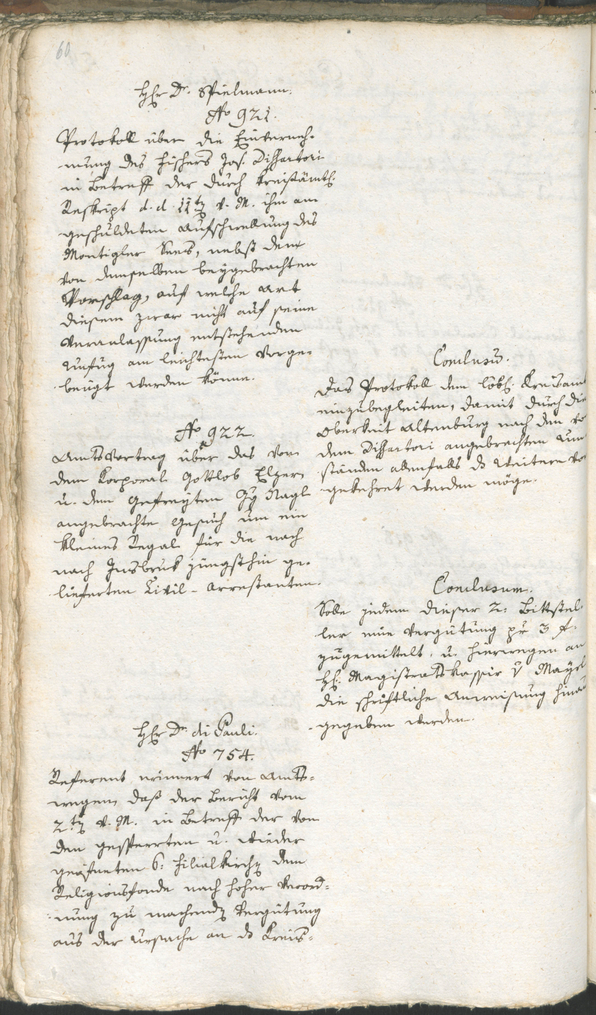 60
Hr Dr. Spielmann.
No 921.
Protokoll über die Einverneh-
mung des Fischers Jos. Dissertori
in Betreff der durch kreisämtl.
Reskript d. d. 11tn v. M. ihm an
geschuldeten Aufschwellung des
Montigler Sees, nebst dem
von demselben beygebrachten
Vorschlag, auf welche Art
diesem zwar nicht auf seine
Veranlassung entstehenden
Unfug am leichtesten vorge-
beugt werden könne.
Conclusum.
Das Protokoll dem löbl. Kreisamt
einzubegleiten, damit durch die
Obrikeit Altenburg nach den von
dem Dissertori angebrachten Um
ständen allenfalls das Weitere vor
gekehret werden möge.
No 922
Amtsvortrag über das von
dem Korporal Gottlob Elger
u. dem Gefreyten Gg Nagl
angebrachte Gesuch um ein
kleines Regal für die nach
nach Insbruk jüngsthin ge-
lieferten Civil-Arrestanten.
Conclusum.
Solle jedem dieser 2: Bittstel-
ler eine Vergütung pr 3 f.
zugemittelt, u. hierwegen an
H. Magistratskassir v Mayrl
die schriftliche Anweisung hinaus
gegeben werden.
Hr Dr. di Pauli.
No 754.
Referent erinnert von Amts-
wegen, daß der Bericht vom
2tn v. M. in Betreff der von
den gesperrten u. wieder
geöfneten 6: Filialkirchen dem
Religionsfonde nach hoher Verord-
nung zu machenden Vergütung
aus der Ursache an das Kreis-